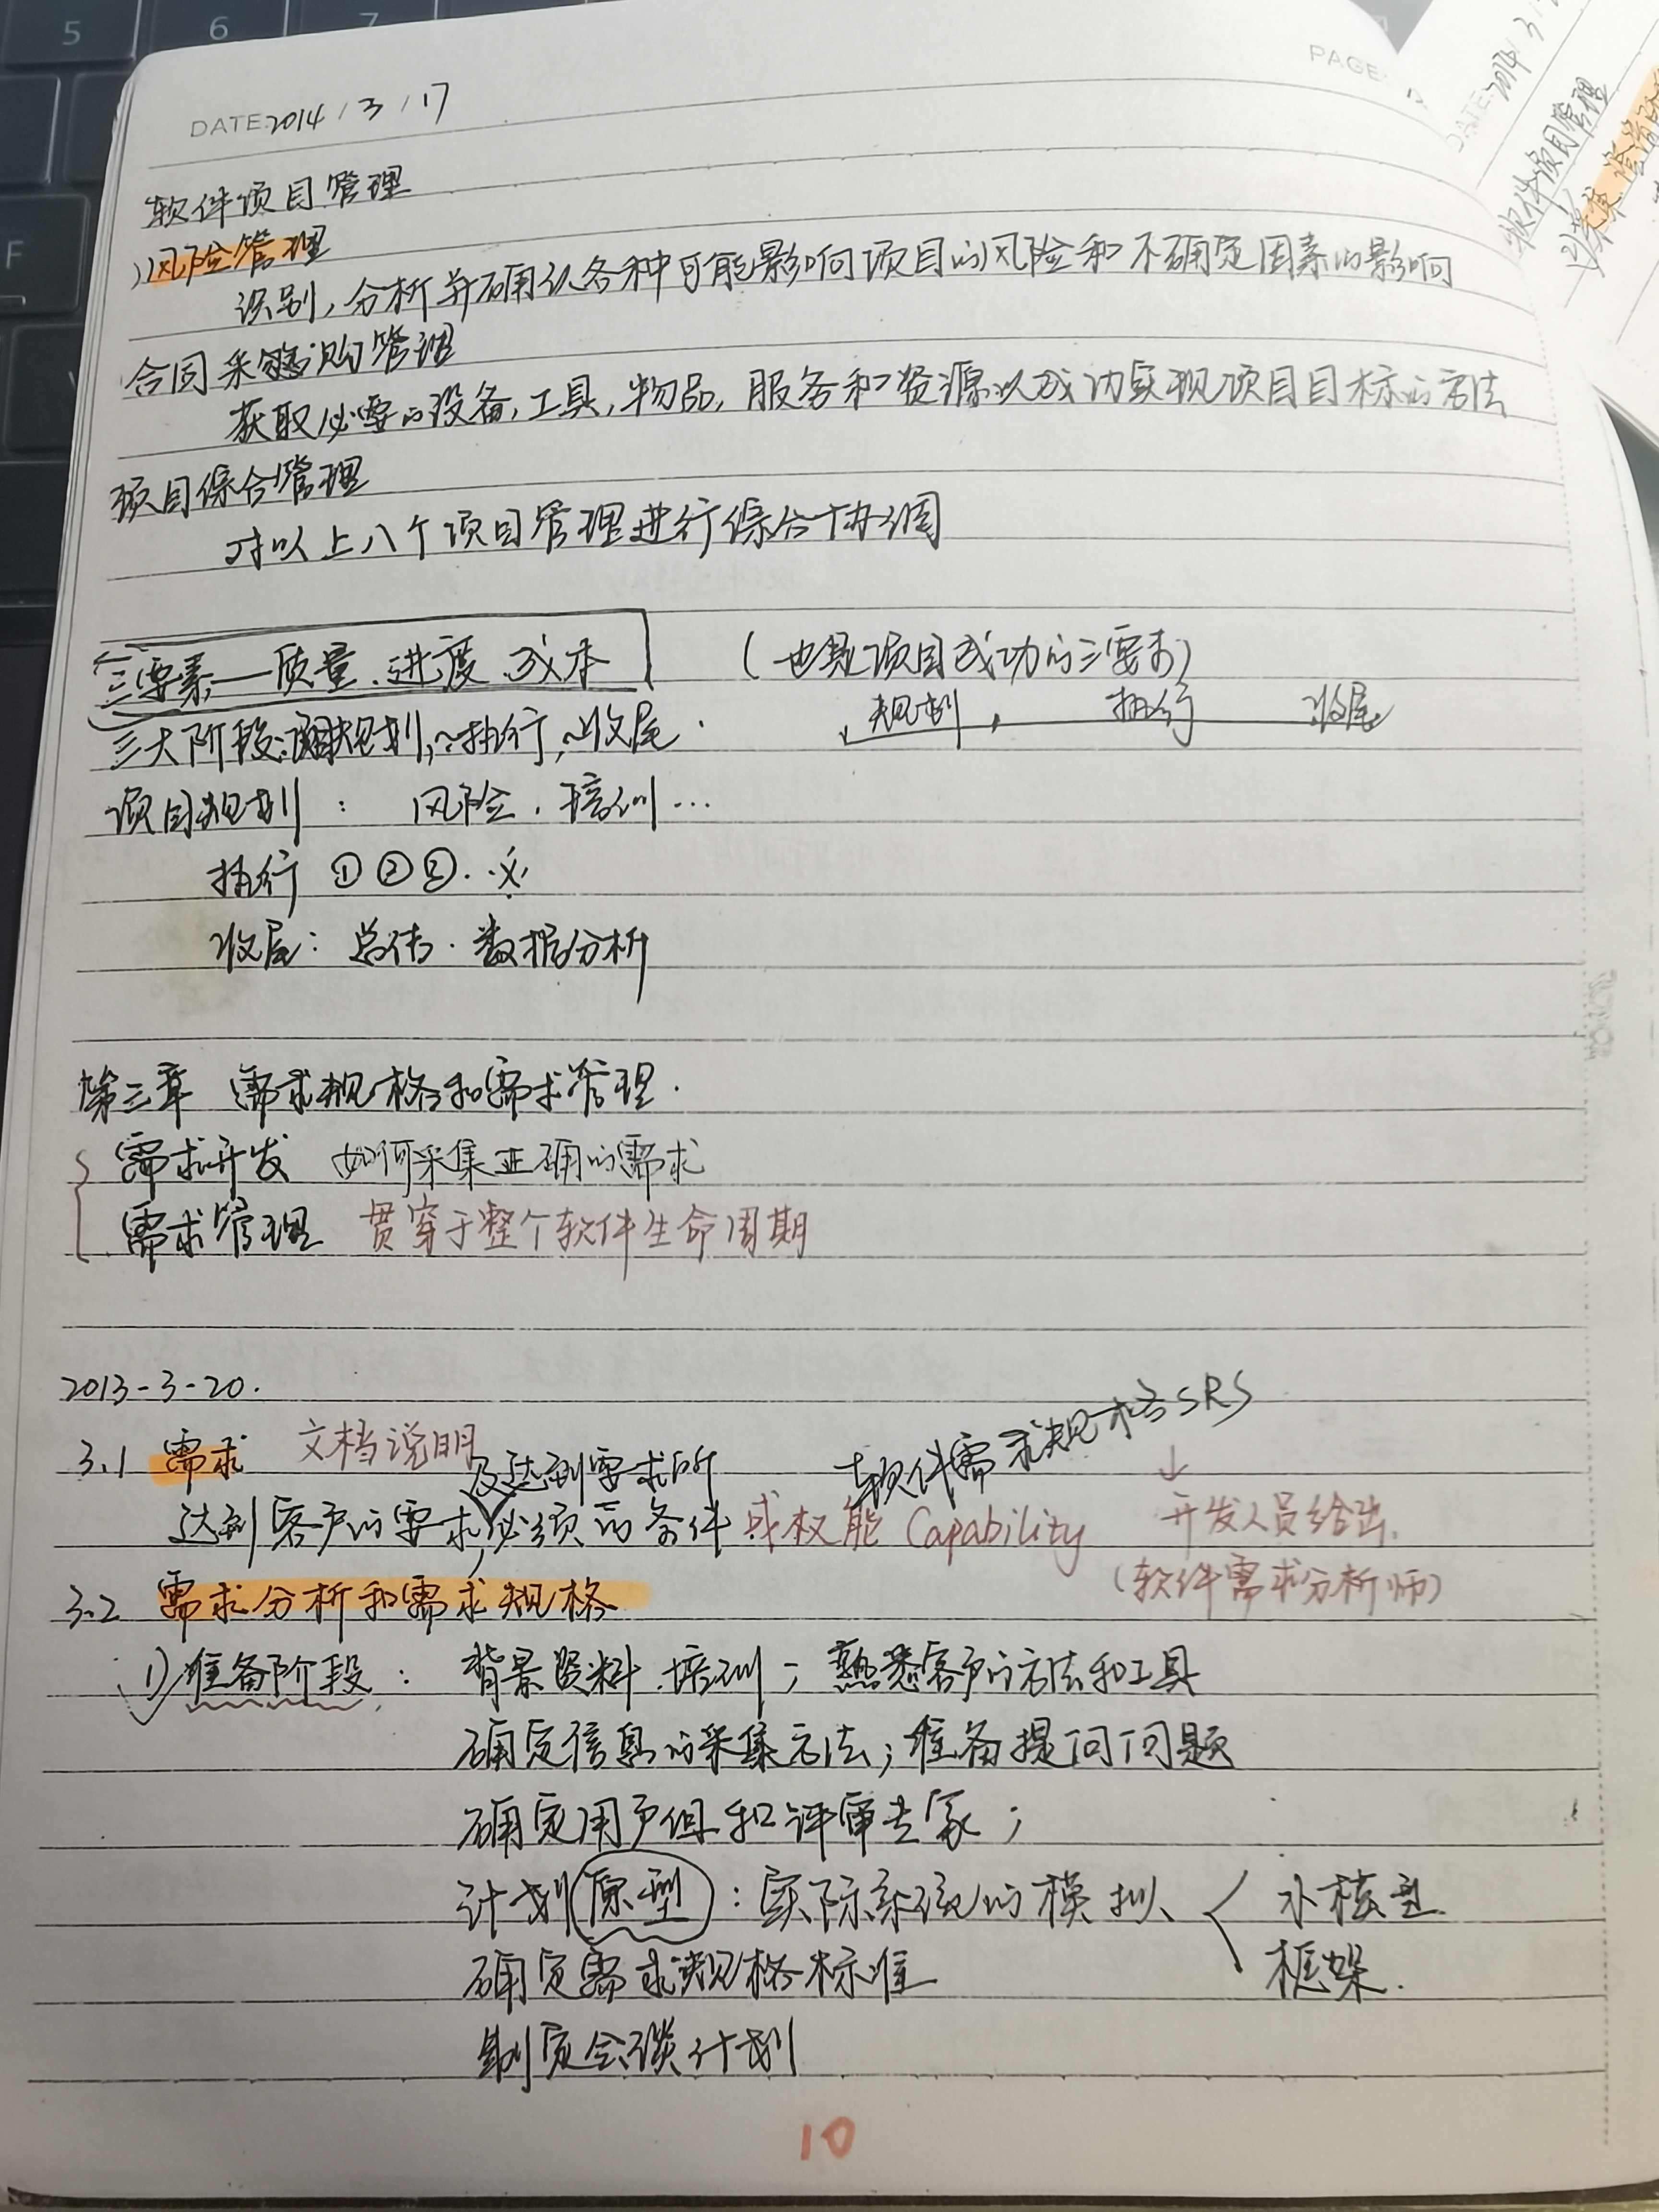 5 6 7
F
PAGE:
DATE:2014 / 3 / 17
软件项目管理
风险管理
识别,分析并确认各种可能影响项目的风险和不确定因素的影响
合同采购管理
获取必要的设备,工具,物品,服务和资源以成功实现项目目标的方法
项目综合管理
对以上八个项目管理进行综合协调
三要素——质量、进度、成本 (也是项目成功的三要求)
三大阶段:规划,~执行,~收尾. 规划, 执行 收尾
项目规划: 风险、培训...
执行 ①②③..
收尾: 总结、数据分析
第三章 需求规格和需求管理.
需求开发 如何采集正确的需求
需求管理 贯穿于整个软件生命周期
2013-3-20.
3.1 需求 文档说明 软件需求规格SRS
及达到要求所
达到客户的要求,必须的条件或权能 Capability
↓
开发人员给出.
(软件需求分析师)
3.2 需求分析和需求规格
1)准备阶段: 背景资料、培训; 熟悉客户的方法和工具
确定信息的采集方法; 准备提问问题
确定用户组和评审专家;
计划原型: 实际系统的模拟、
框架.
确定需求规格标准
制定会谈计划
10
DATE:2014/3/
软件项目管理